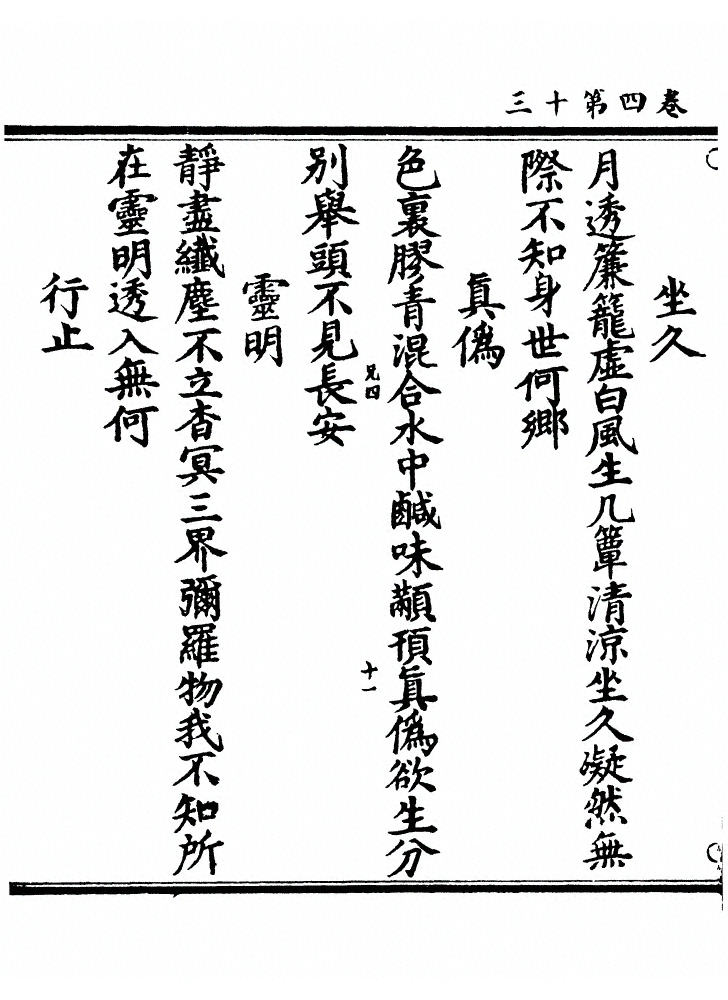 卷四第十三
坐久
月透簾籠虛白風生几簟清涼坐久礙然無
際不知身世何鄉
眞偽
色裏膠青混合水中鹹味顢頇眞偽欲生分
兄四
十一
別舉頭不見長安
靈明
靜盡纖塵不立杳冥三界彌羅物我不知所
在靈明透入無何
行止